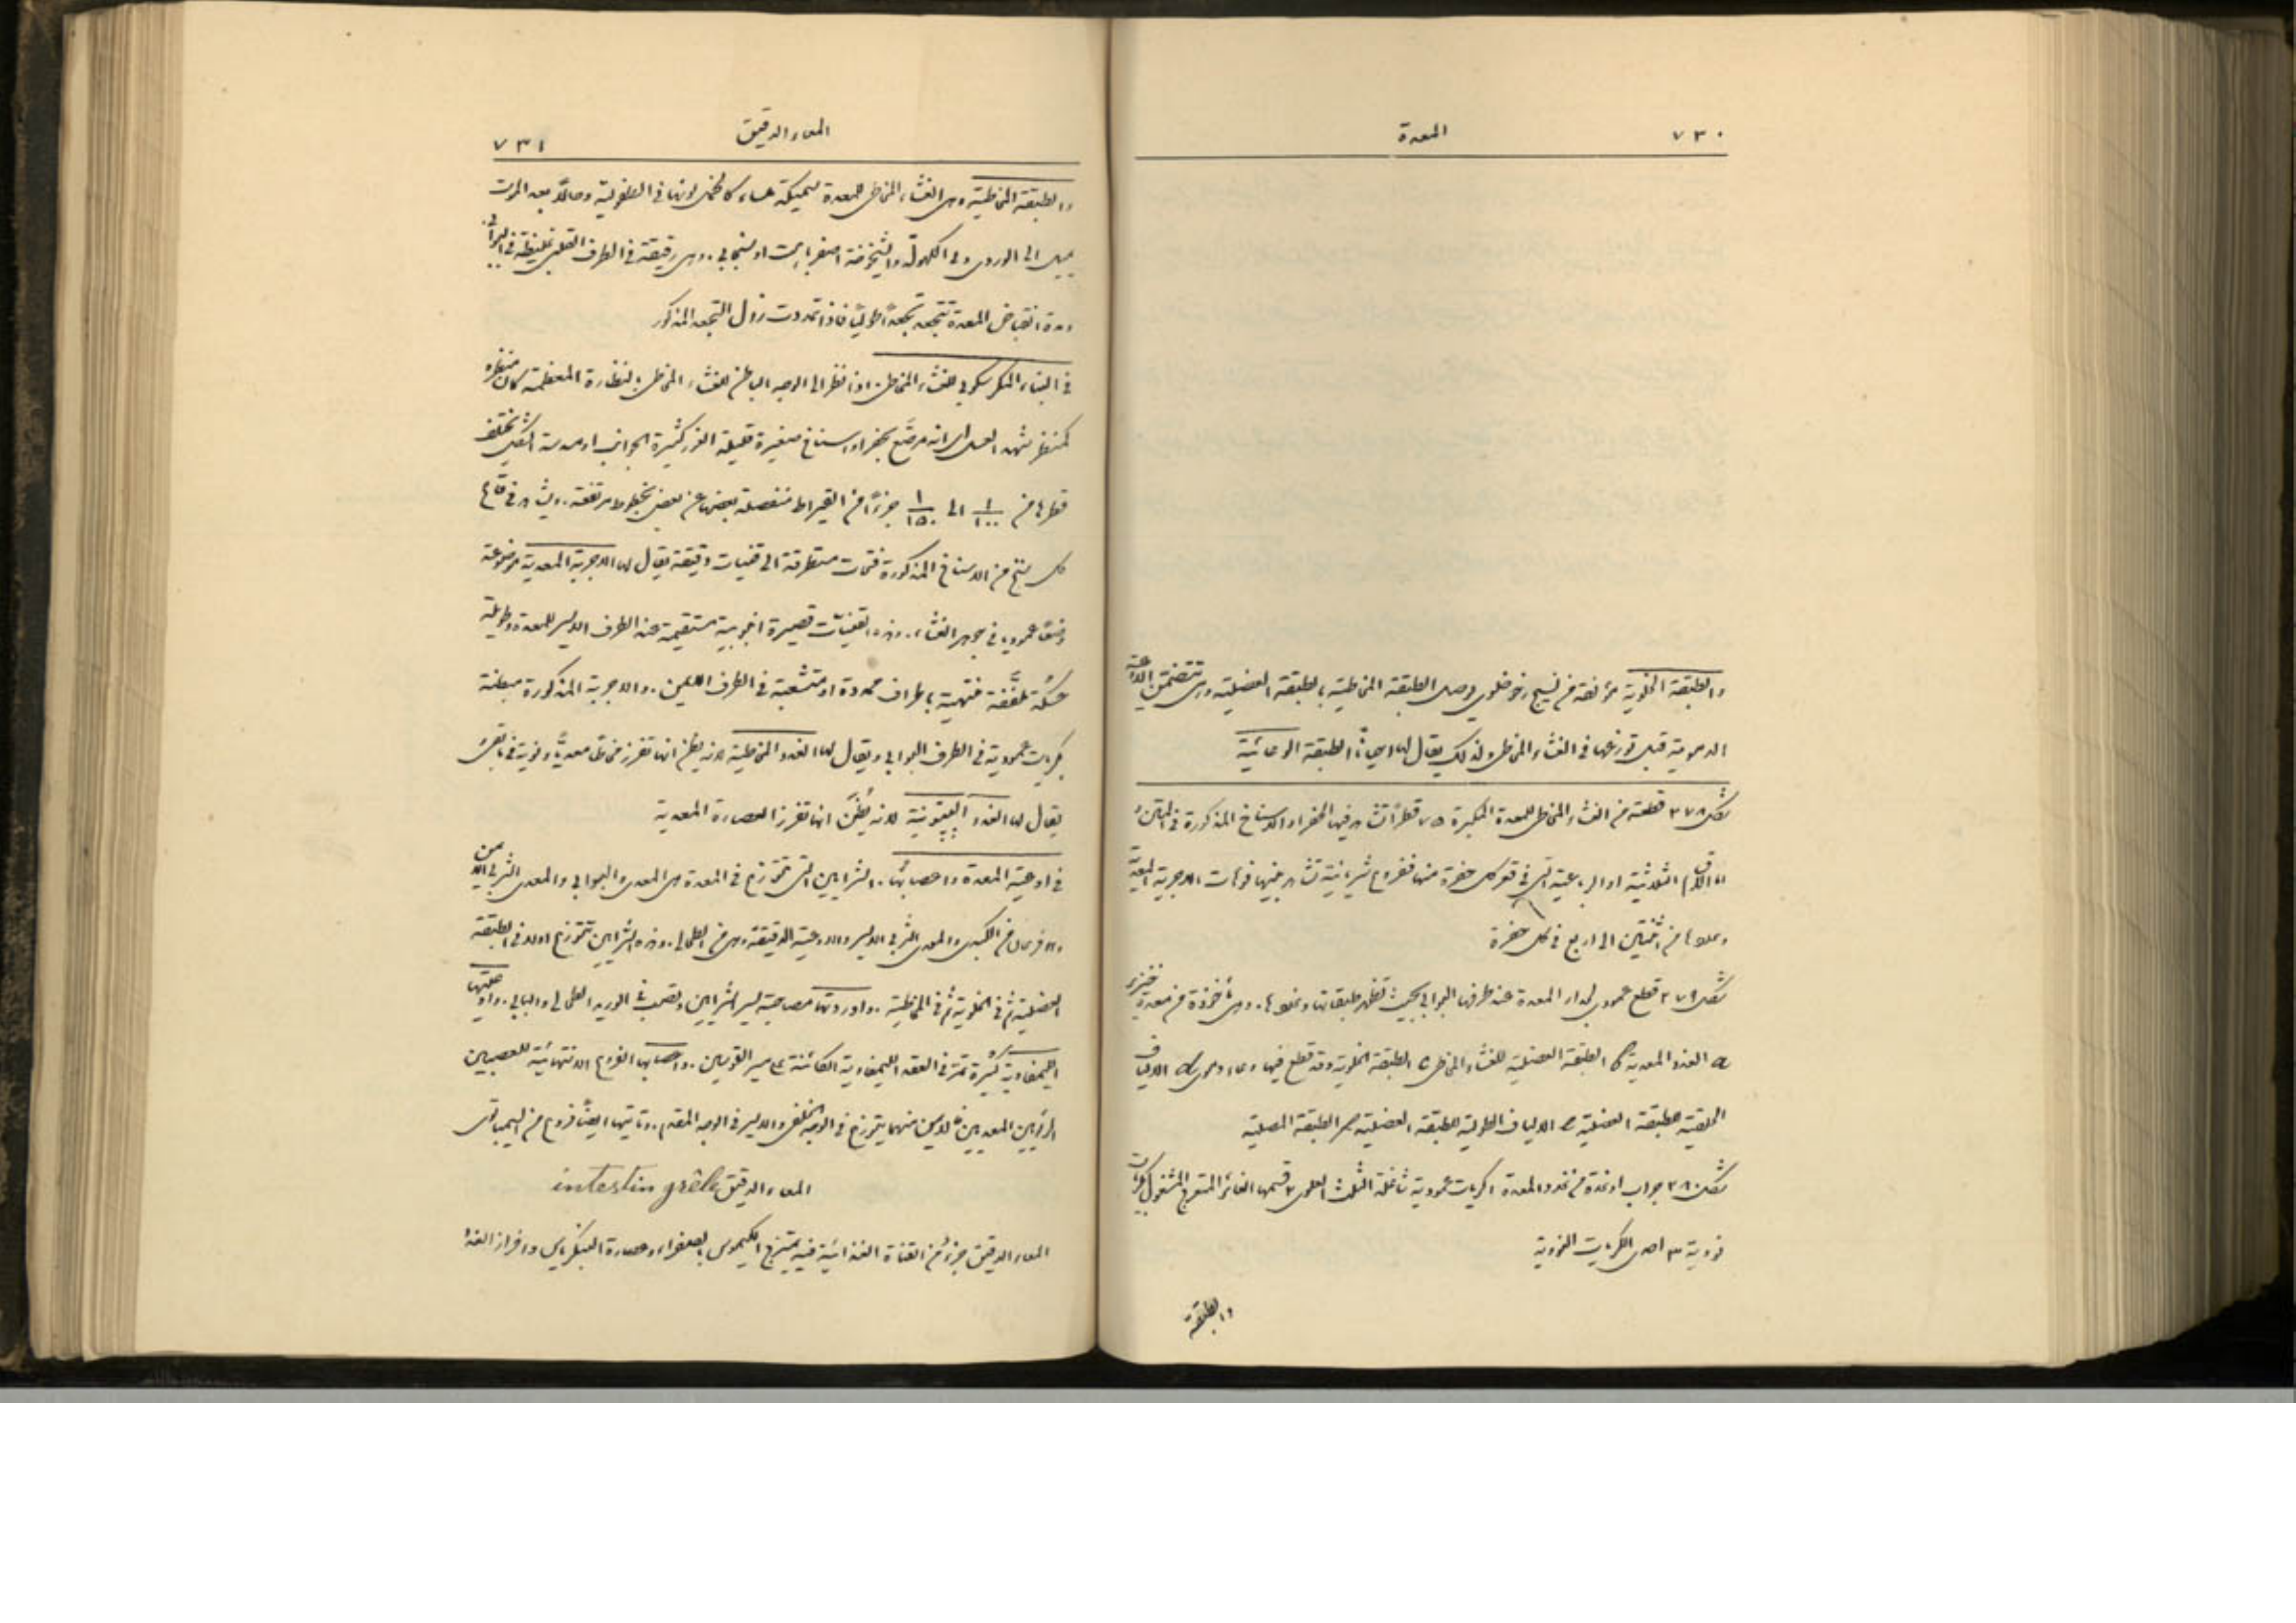 ٧٣٠
المعدة
والطبقة الخلوية مؤلفة من نسيج رخو خلوي يوصل الطبقة المخاطية بالطبقة العضلية وهي تتضمن الاوعية
الدموية قبل توزعها في الغشاء المخاطي ولذلك يقال لها احيانًا الطبقة الوعائية
شكل ٣٧٨ قطعة من الغشاء المخاطي للمعدة المكبرة ٧٥ قطرًا تشاهد فيها الحفر او الاسناخ المذكورة في المتن
اما الاقسام الثلاثية او الرباعية التي في قعر كل حفرة منها ففروع شريانية تشاهد بينها فوهات الاجربة المعدية
وعددها من اثنتين الى اربع في كل حفرة
شكل ٣٧٩ قطع عمودي لجدار المعدة عند طرفها البوابي بحيث تظهر طبقاتها وغددها. وهي مأخوذة من معدة خنزير
a الغدد المعدية b الطبقة العضلية للغشاء المخاطي c الطبقة الخلوية وقد قطع فيها وعاء دموي d الالياف
الحلقية للطبقة العضلية e الالياف الطولية للطبقة العضلية الطبقة المصلية
شكل ٣٨٠ جراب او غدة من غدد المعدة ١ كريات عمودية شاغلة الثلث العلوي ٢ قسمها الغائر المتعرج المشغول بكريات
نووية ٣ احدى الكريات النووية
والطبقة
المعاء الدقيق
٧٣١
والطبقة المخاطية وهي الغشاء المخاطي للمعدة سميكة ملساء كالمخمل لونها في الطفولية وحالًا بعد الموت
يميل الى الوردي وفي الكهولة والشيخوخة اصفر باهت او سنجابي. وهي رقيقة في الطرف القلبي غليظة في البوابي.
ومدة انقباض المعدة تتجعد تجعدًا طوليًا فاذا تمددت زال التجعد المذكور
في البناء المكرسكوبي للغشاء المخاطي. اذا نظر الى الوجه الباطن للغشاء المخاطي بالنظارة المعظمة كان منظره
كمنظر شهد العسل اي انه مرصَّع بحفر او اسناخ صغيرة قليلة الغور كثيرة الجوانب او مسدسة الشكل يختلف
قطرها من ١/١٠٠ الى ١/١٥٠ جزءًا من القيراط منفصلة بعضها عن بعض بخطوط مرتفعة. ويشاهد في قاع
كل سنخ من الاسناخ المذكورة فتحات متطرقة الى قنيات دقيقة يقال لها الاجربة المعدية موضوعة
وضعًا عموديًا في جوهر الغشاء. وهذه القنيات قصيرة انبوبية مستقيمة عند الطرف الايسر للمعدة وطويلة
سمكة ملففة منتهية باطراف محدودة او متشعبة في الطرف الايمن. والاجربة المذكورة مبطنة
بكريات عمودية في الطرف البوابي ويقال لها الغدد المخاطية لانه يظن انها تفرز مخاطًا معديًا ونووية في باقي
يقال لها الغدد الببتونية لانه يُظَنّ انها تفرز العصارة المعدية
في اوعية المعدة واعصابها. الشرايين التي تتوزع في المعدة هي المعدي والبوابي والمعدي الثربي الايمن
وهو فرعان من الكبدي والمعدي الثربي الايسر والاوعية الدقيقة وهي من الطحالي. وهذه الشرايين تتوزع اولًا في الطبقة
العضلية ثم في الخلوية ثم في المخاطية. واوردتها مصاحبة لسير الشرايين وتصب في الوريد الطحالي والبابي. واوعيتها
الليمفاوية كثيرة تمر في العقد الليمفاوية الكائنة على مسير القوسين. واعصابها الفروع الانتهائية للعصبين
الرئويين المعديين فالايمن منهما يتوزع في الوجه الخلفي والايسر في الوجه المقدم. وتاتيها ايضًا فروع من السيمباتوي
المعاء الدقيق intestin grêle
المعاء الدقيق جزءٌ من القناة الغذائية فيه يمتزج الكيموس بالصفراء وعصارة البنكرياس وافراز الغدد